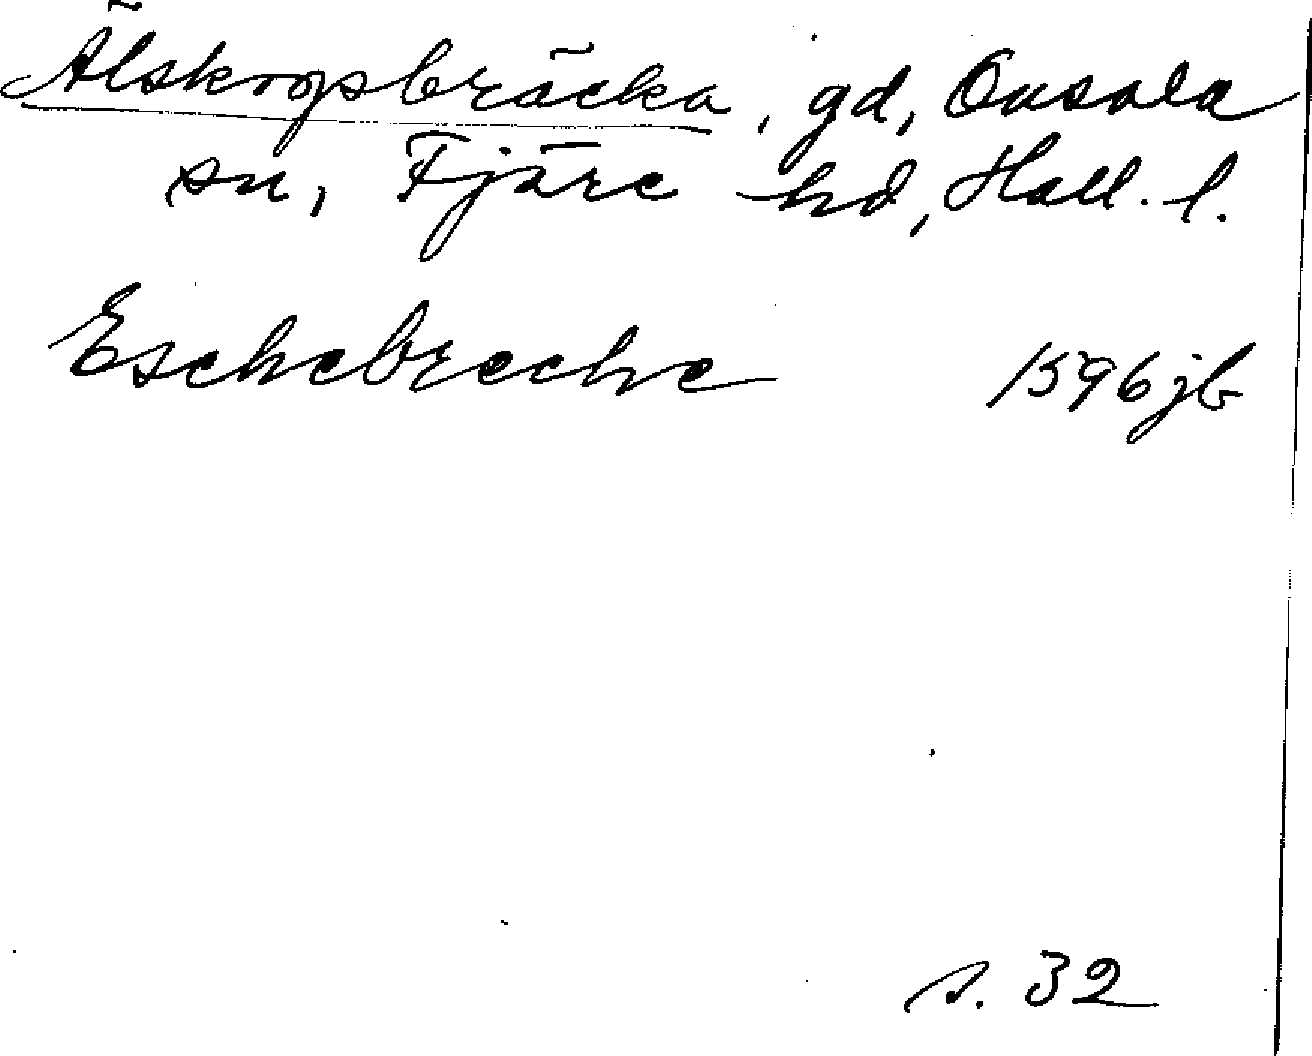 Älskogsbräcka, gd, Onsala
sn, Fjäre hd, Hall. l.
Eschebreche 1596 jb
s. 32